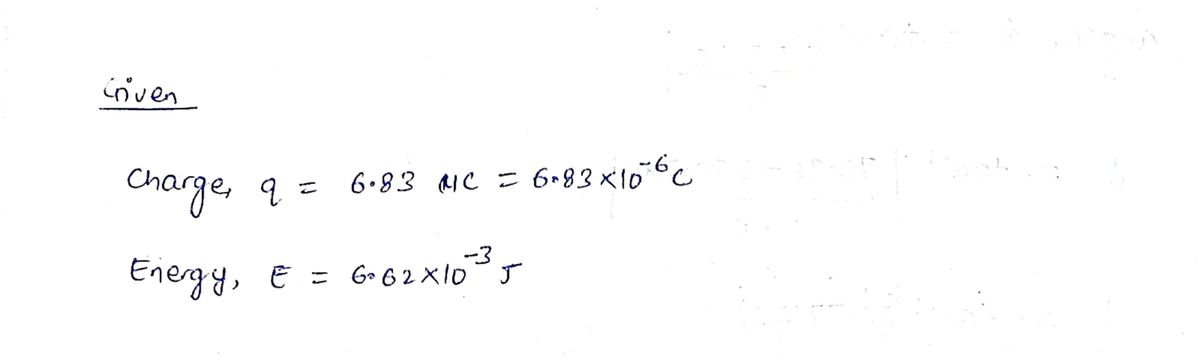 Given
Charge, q = 6.83 μC = 6.83 × 10⁻⁶ C
Energy, E = 6.62 × 10⁻³ J